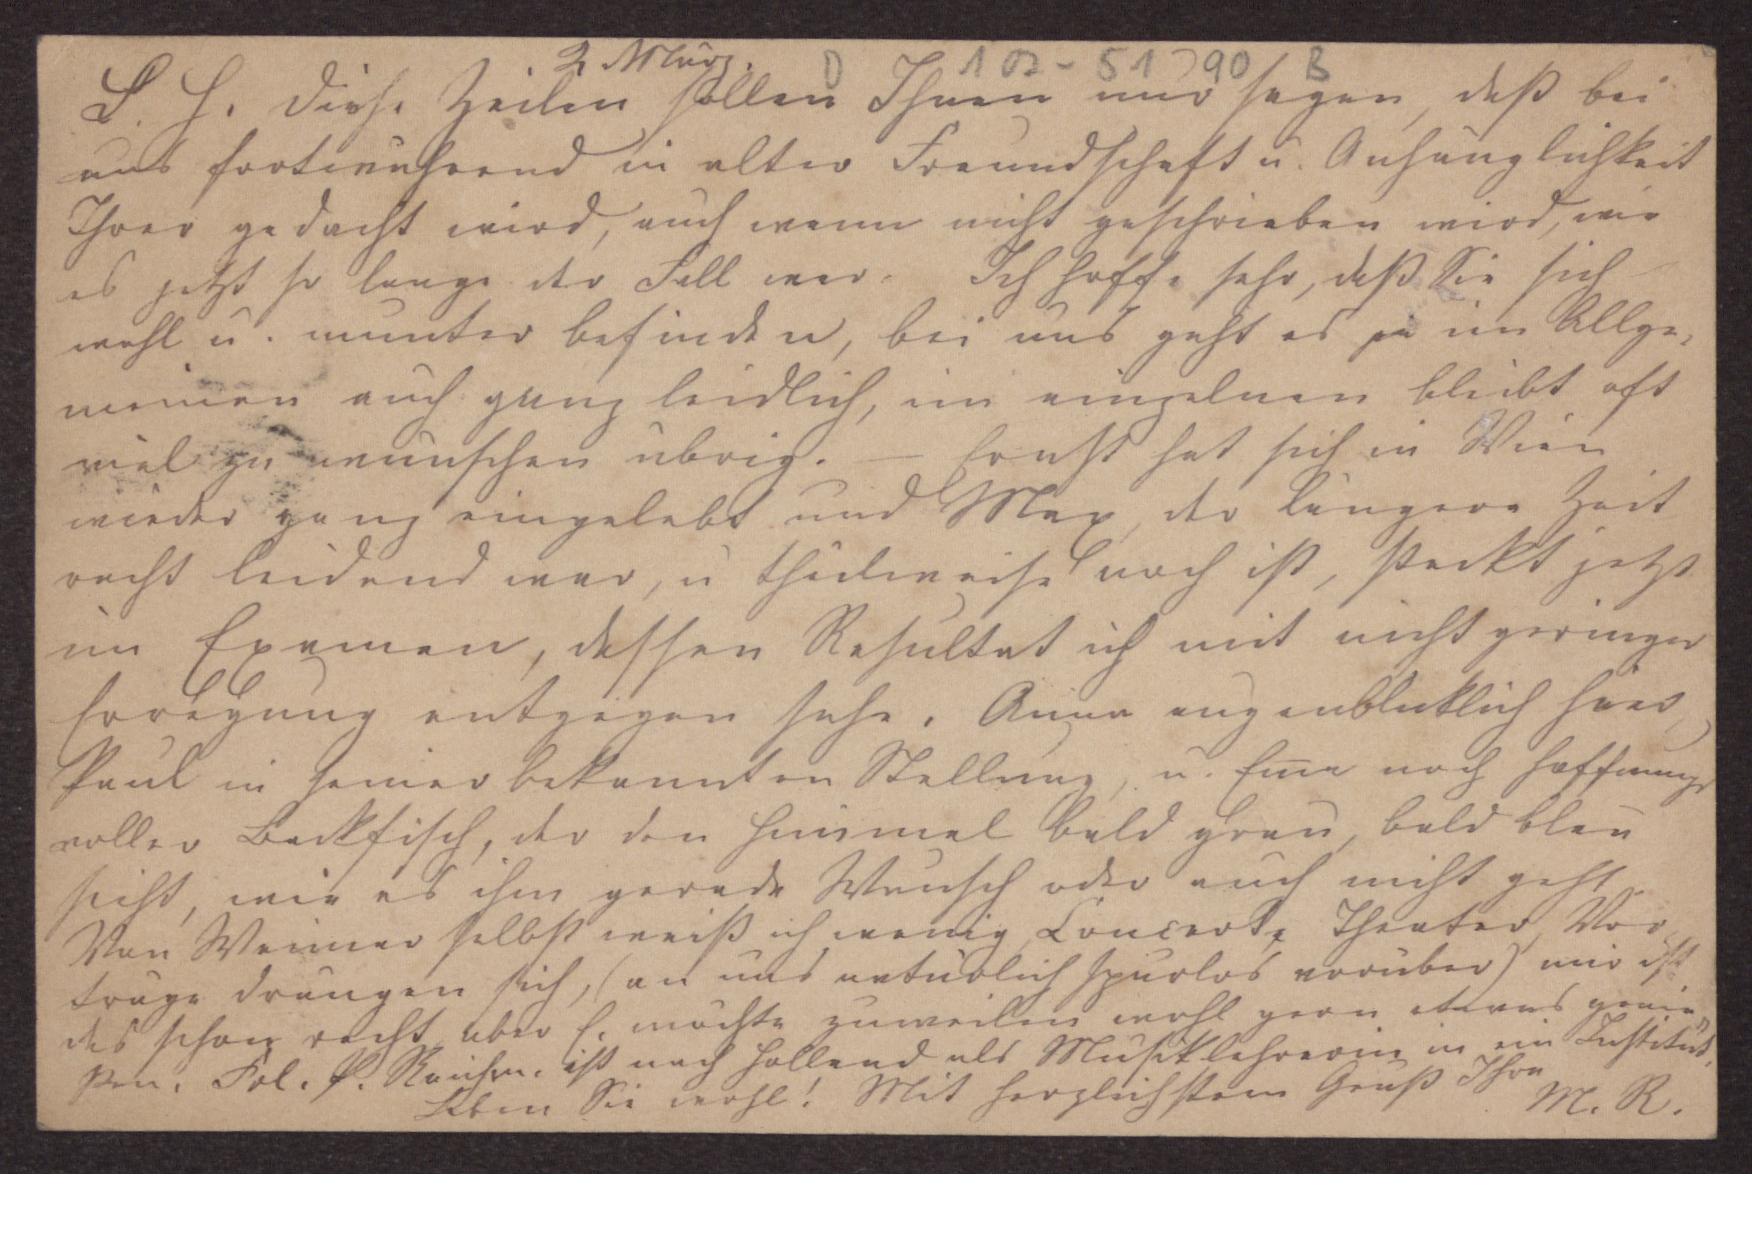 2. März. D 102-51790 B
L. H. Diese Zeilen sollen Ihnen nur sagen, daß bei
uns fortwährend in alter Freundschaft u. Anhänglichkeit
Ihrer gedacht wird, auch wenn nicht geschrieben wird, wie
es jetzt so lange der Fall war. Ich hoffe sehr, daß Sie sich
wohl u. munter befinden, bei uns geht es ja im Allge-
meinen auch ganz leidlich, im einzelnen bleibt oft
viel zu wünschen übrig. — Ernst hat sich in Wien
wieder ganz eingelebt und Max, der längere Zeit
recht leidend war, u theilweise noch ist, steckt jetzt
im Examen, dessen Resultat ich mit nicht geringer
Erregung entgegen sehe. Anna augenblicklich hier,
Paul in seiner bekannten Stellung, u. Em̅a noch hoffnungs
voller Backfisch, der den Himmel bald grau, bald blau
sieht, wie es ihm gerade Wunsch oder auch nicht geht
Von Weimar selbst weiß ich wenig, Concerte, Theater, Vor
träge drängen sich, (an uns natürlich spurlos vorüber) mir ist
das schon recht, aber E. möchte zuweilen wohl gern etwas genie-
ßen. Frl. P. ist nach Holland als Musiklehrerin in ein Institut.
Leben Sie wohl! Mit herzlichstem Gruß Ihre
M. R.